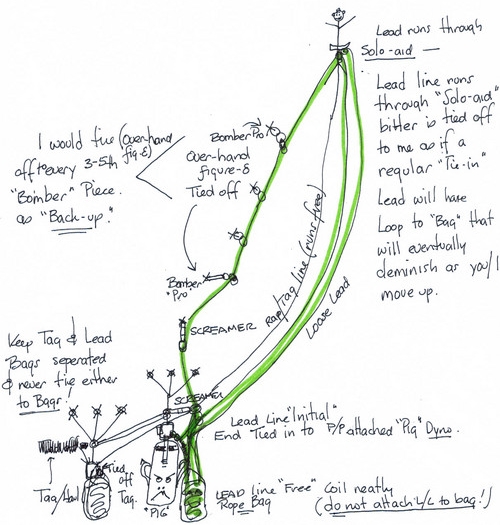 Lead runs through
Solo-aid —
Lead line runs
through "Solo-aid"
bitter is tied off
to me as if a
regular "Tie-in"
Lead will have
Loop to "Bag" that
will eventually
deminish as you/I
move up.
I would tie (Over-hand
fig-8)
off to every 3-5th
"Bomber" Piece.
as "Back-up."
Bomber Pro
Over-hand
figure-8
Tied off
Bomber
"Pro"
Rap/Tag line (runs free)
Loose Lead
SCREAMER
SCREAMER
Keep Tag & Lead
Bags seperated
& never tie either
to Bags!
Lead Line "Initial"
End Tied in to P/P attached "Pig" Dyno.
Tied
off
Tag.
Tag/Haul
"PIG"
LEAD Line "Free" Coil neatly
Rope Bag (do not attach L/L to bag!)